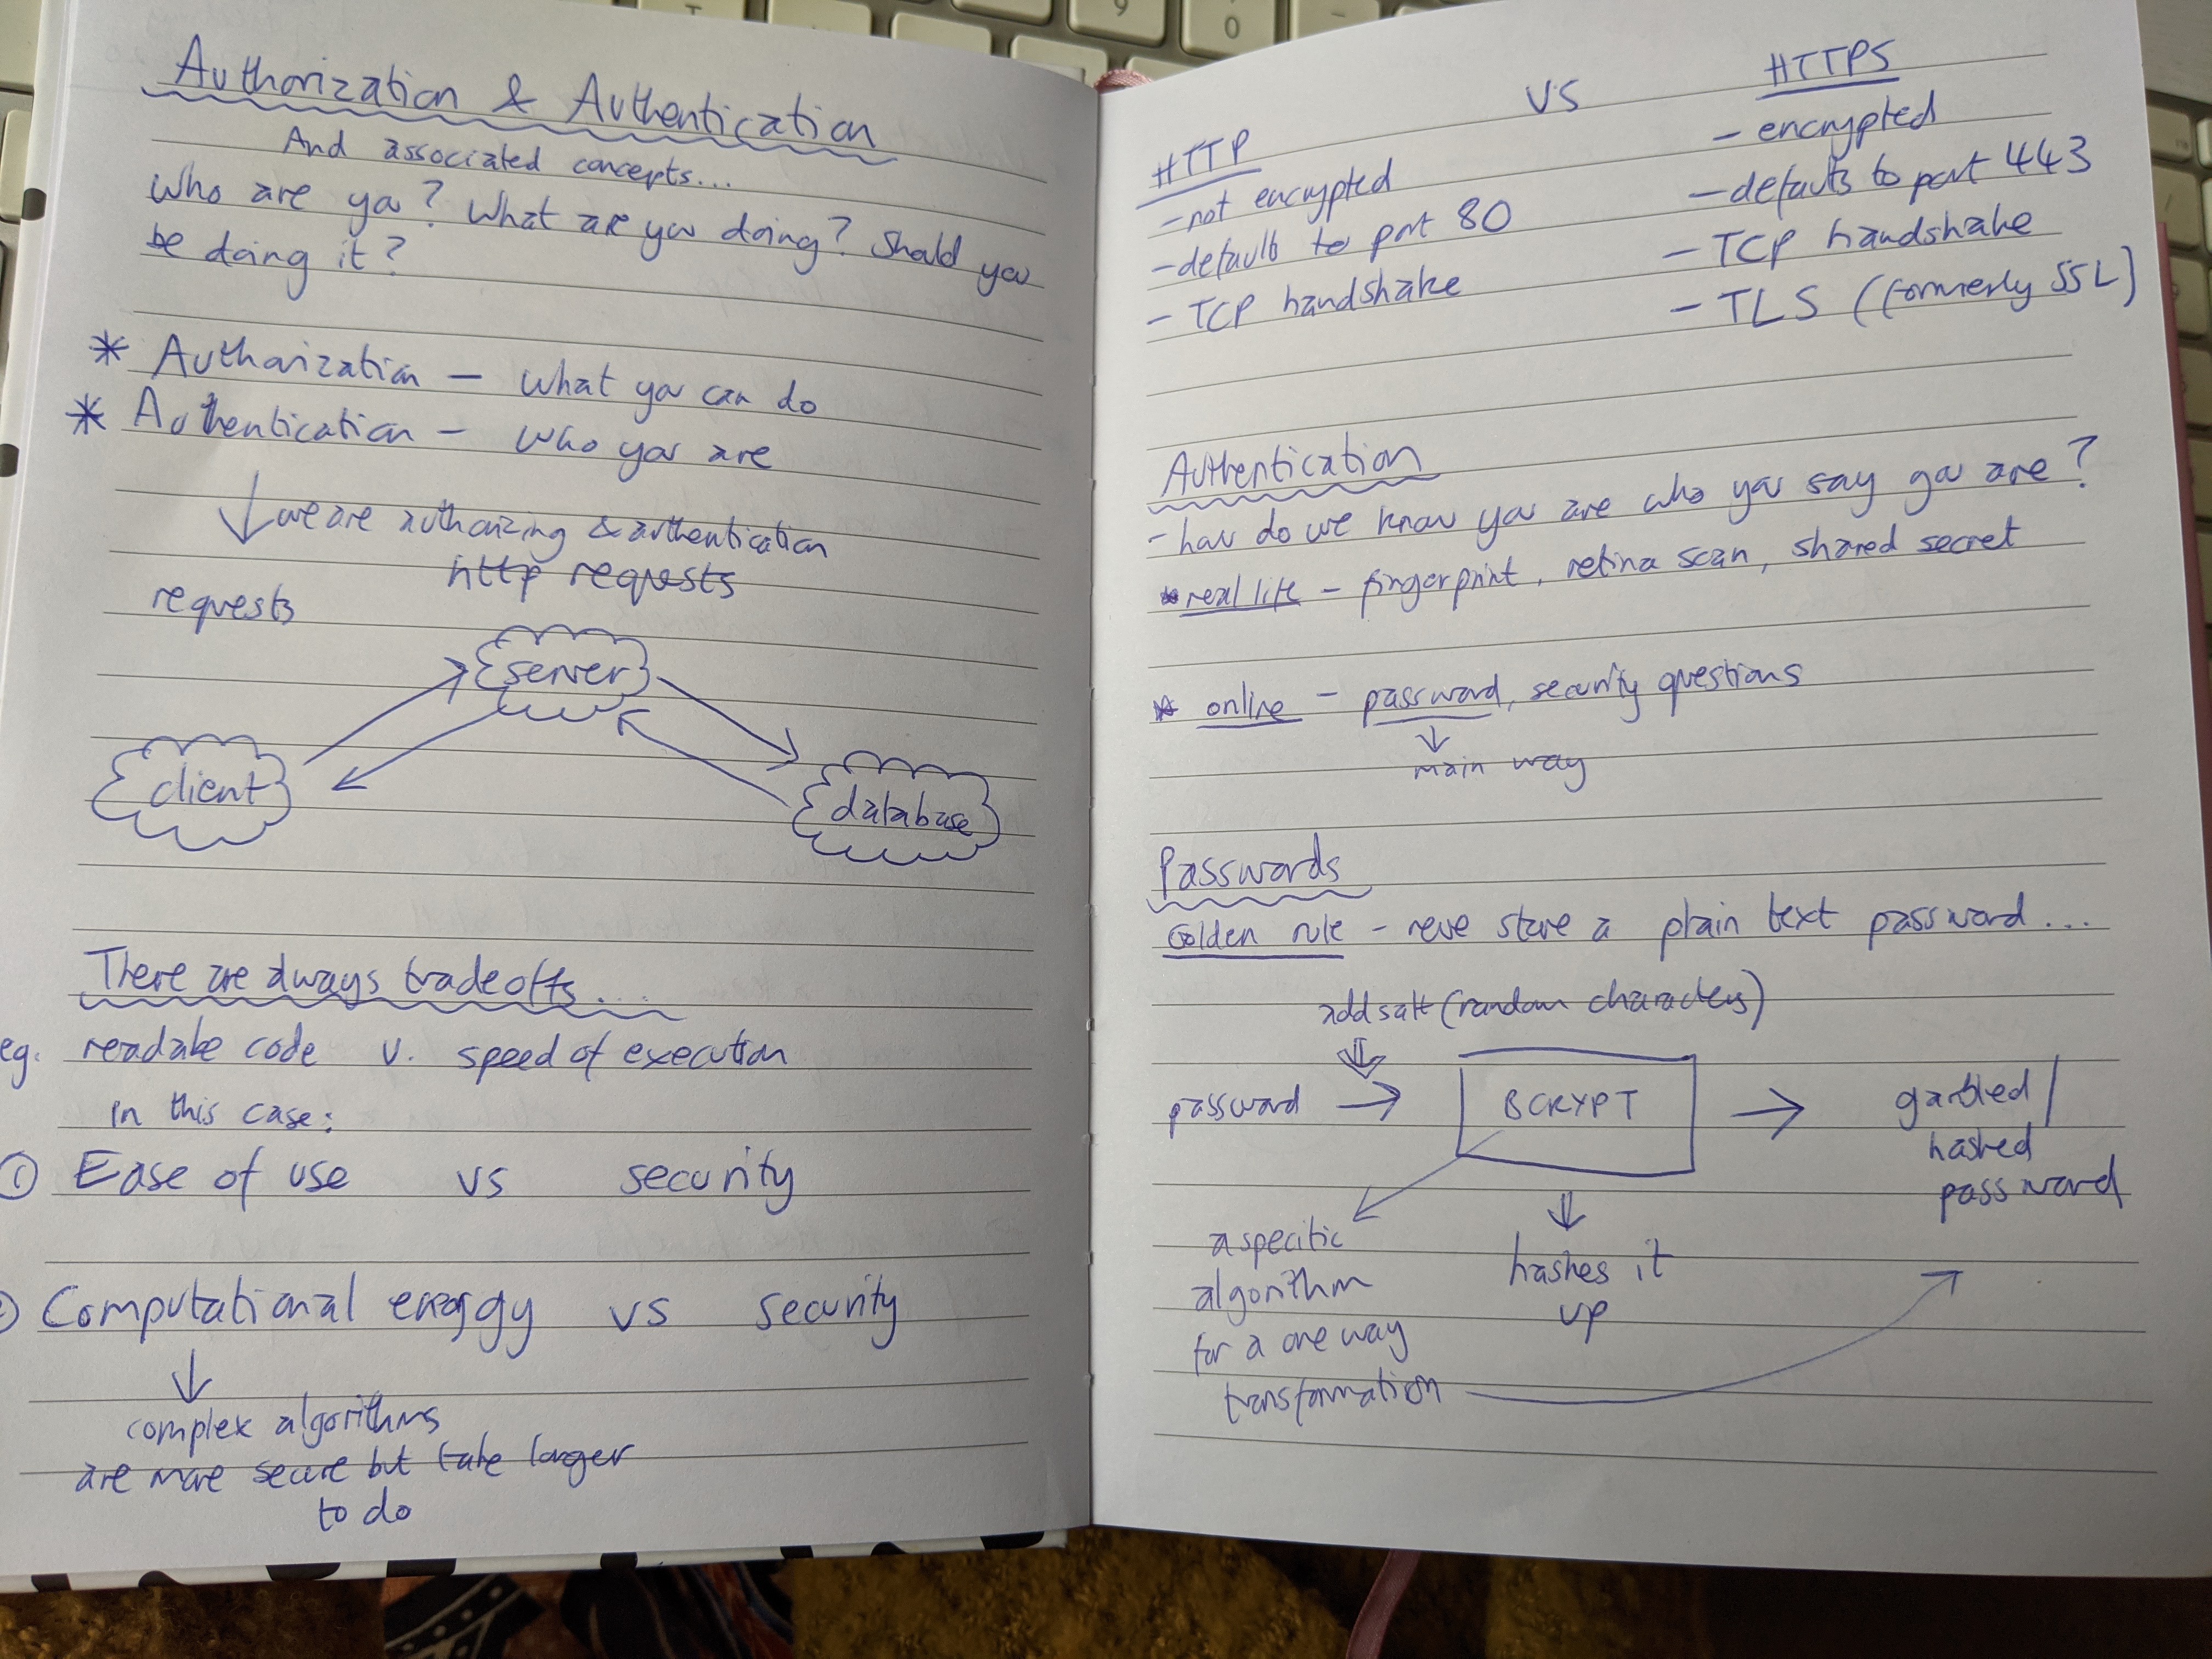 Authorization & Authentication
And associated concepts...
Who are ya? What are you doing? Should you
be doing it?
* Authorization – what you can do
* Authentication – who you are
↓ we are authorizing & authentication
http requests
requests
server
client
database
There are always tradeoffs...
eg. readable code v. speed of execution
in this case:
① Ease of use vs security
Computational energy vs security
↓
complex algorithms
are more secure but take longer
to do
HTTP vs HTTPS
- not encrypted
- defaults to port 80
- TCP handshake
- encrypted
- defaults to port 443
- TCP handshake
- TLS (formerly SSL)
Authentication
- how do we know you are who you say you are?
* real life – fingerprint, retina scan, shared secret
* online – password, security questions
↓
main way
Passwords
Golden rule – neve store a plain text password...
add salt (random characters)
password → BCRYPT → garbled /
hashed
password
a specific
algorithm
for a one way
transformation
hashes it
up